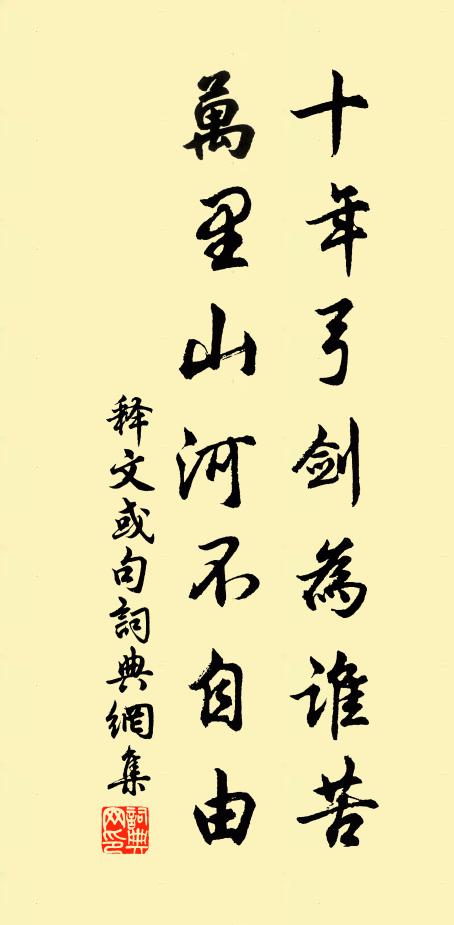 十年弓劍為誰苦
萬里山河不自由
释文或句詞典網集
詞典网印